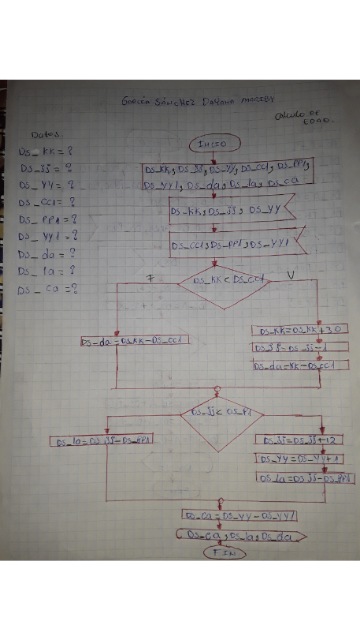 García Sánchez Dafone
CALCULO DE
EDAD.
Datos
DS_KK=?
DS_JJ=?
DS_YY=?
DS_CC1=?
DS_PP1=?
DS_YY1=?
DS_da=?
DS_la=?
DS_ca=?
INICIO
DS_KK, DS_JJ, DS_YY, DS_CC1, DS_PP1,
DS_YY1, DS_da, DS_la, DS_ca
DS_KK, DS_JJ, DS_YY
DS_CC1, DS_PP1, DS_YY1
DS_KK < DS_CC1
F
V
DS_da=DS_KK-DS_CC1
DS_KK=DS_KK+30
DS_JJ=DS_JJ-1
DS_da=KK-DS_CC1
DS_JJ<DS_P1
DS_la=DS_JJ-DS_PP1
DS_JJ=DS_JJ+12
DS_YY=DS_YY+1
DS_la=DS_JJ-DS_PP1
DS_ca=DS_YY-DS_YY1
DS_ca, DS_la, DS_da
FIN